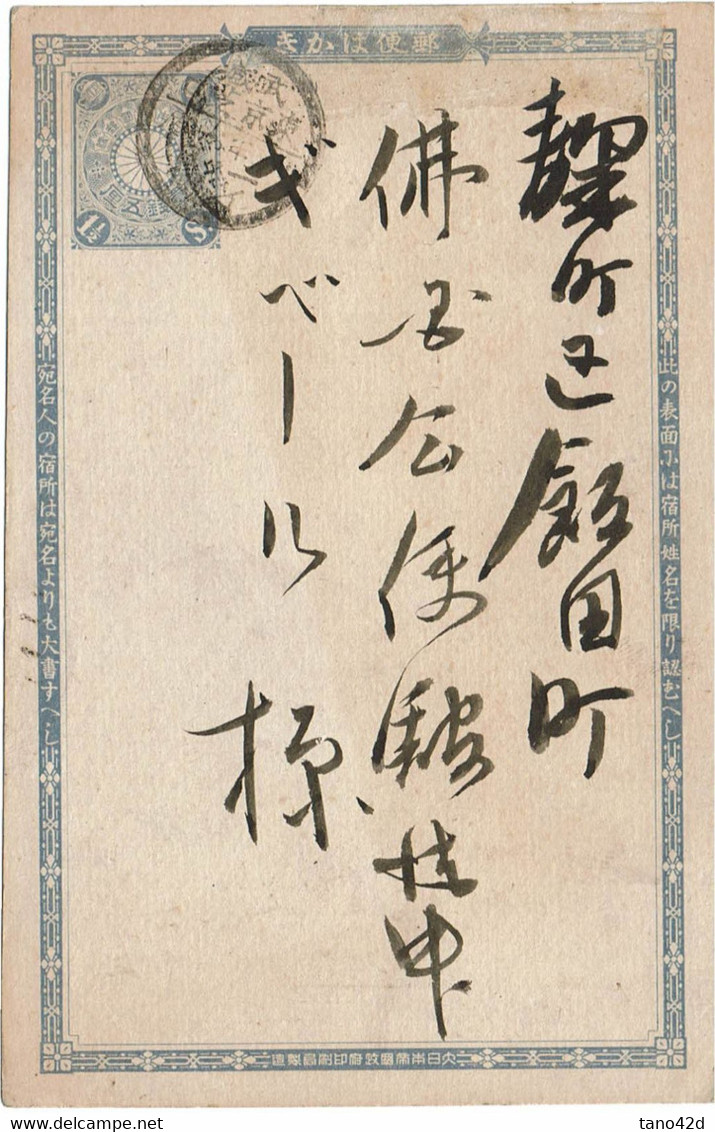 郵便はかき
此の表面には宿所姓名を限り認むへし
麹町区飯田町
佛国公使館状中
ぎベール
様
宛名人の宿所は宛名よりも大書すへし
大日本帝國政府印刷局製造
1½
S
五厘
武蔵
東京
tano42d